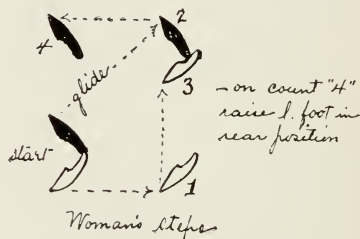 4
2
glide
3
- on count "4"
raise l. foot in
rear position
start
1
Woman's steps